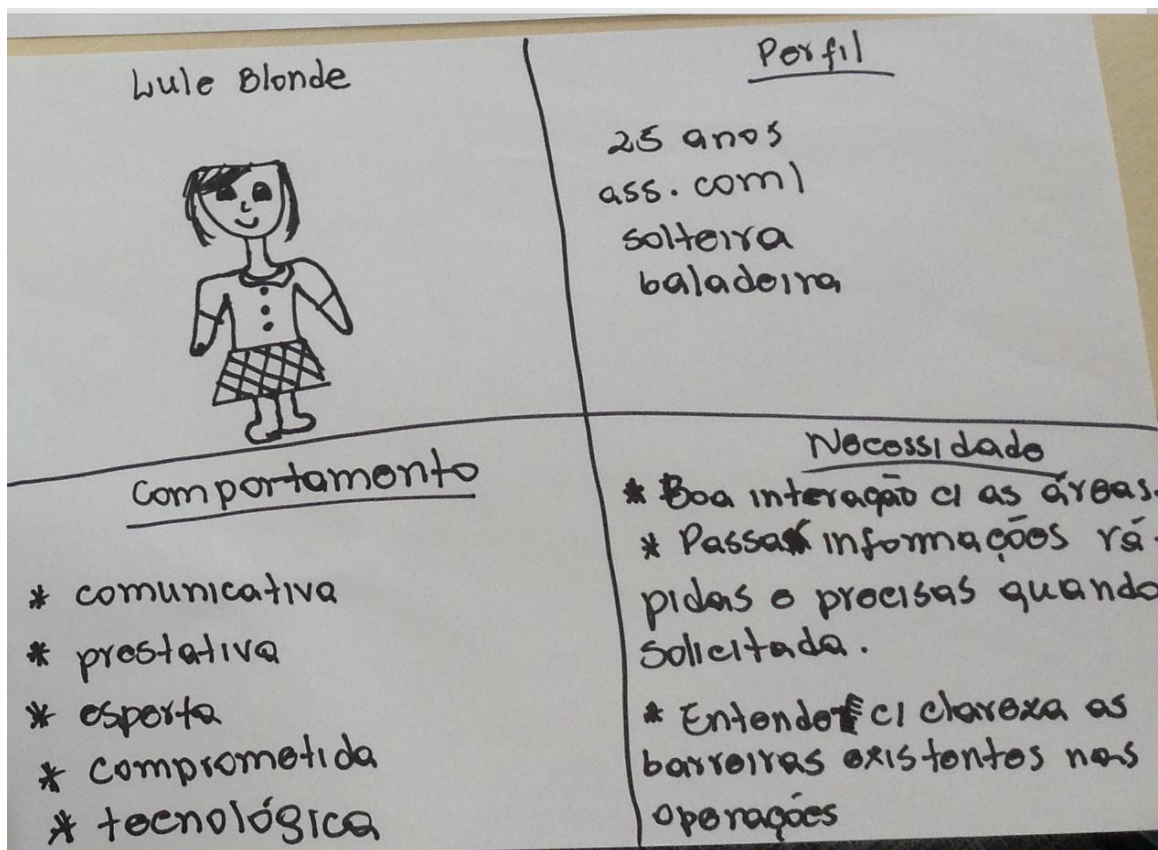 Lule Blonde
Perfil
25 anos
ass. coml
solteira
baladeira
Comportamento
* comunicativa
* prestativa
* esperta
* comprometida
* tecnológica
Necessidade
* Boa interação c/ as áreas.
* Passar informações rá-
pidas e precisas quando
solicitada.
* Entender c/ clareza as
barreiras existentes nas
operações